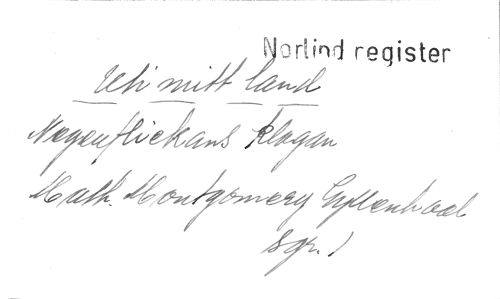 Norlind register
Uti mitt land
Negerflickans klagan
Math. Montgomery Gyllenhaal
sgr. 1